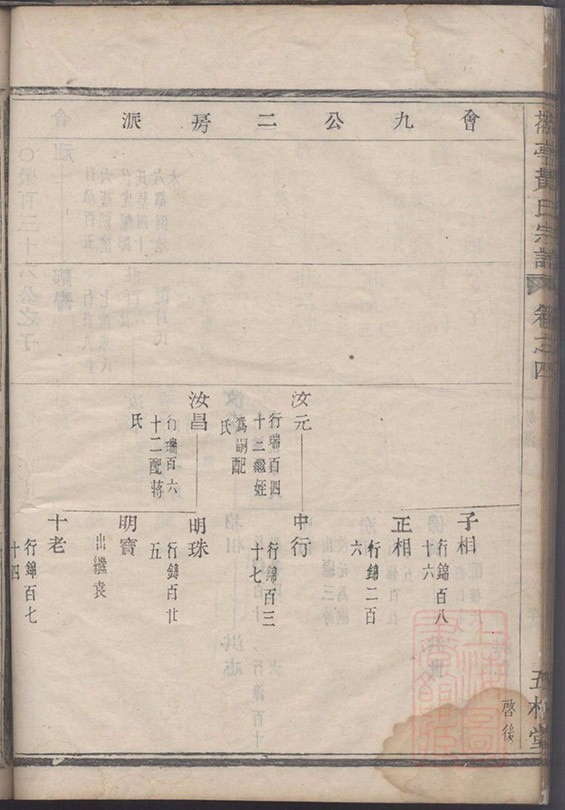 會九公二房派
黃氏宗譜
卷之四
啓後
子相
行錦百八
十六
正相
行錦二百
六
汝元
行瑞百四
十二繼姪
爲嗣配
氏
中行
行錦百三
十七
汝昌
行瑞百六
十二配蔣
氏
明珠
行錦百廿
五
明寶
出繼袁
十老
行錦百七
十四